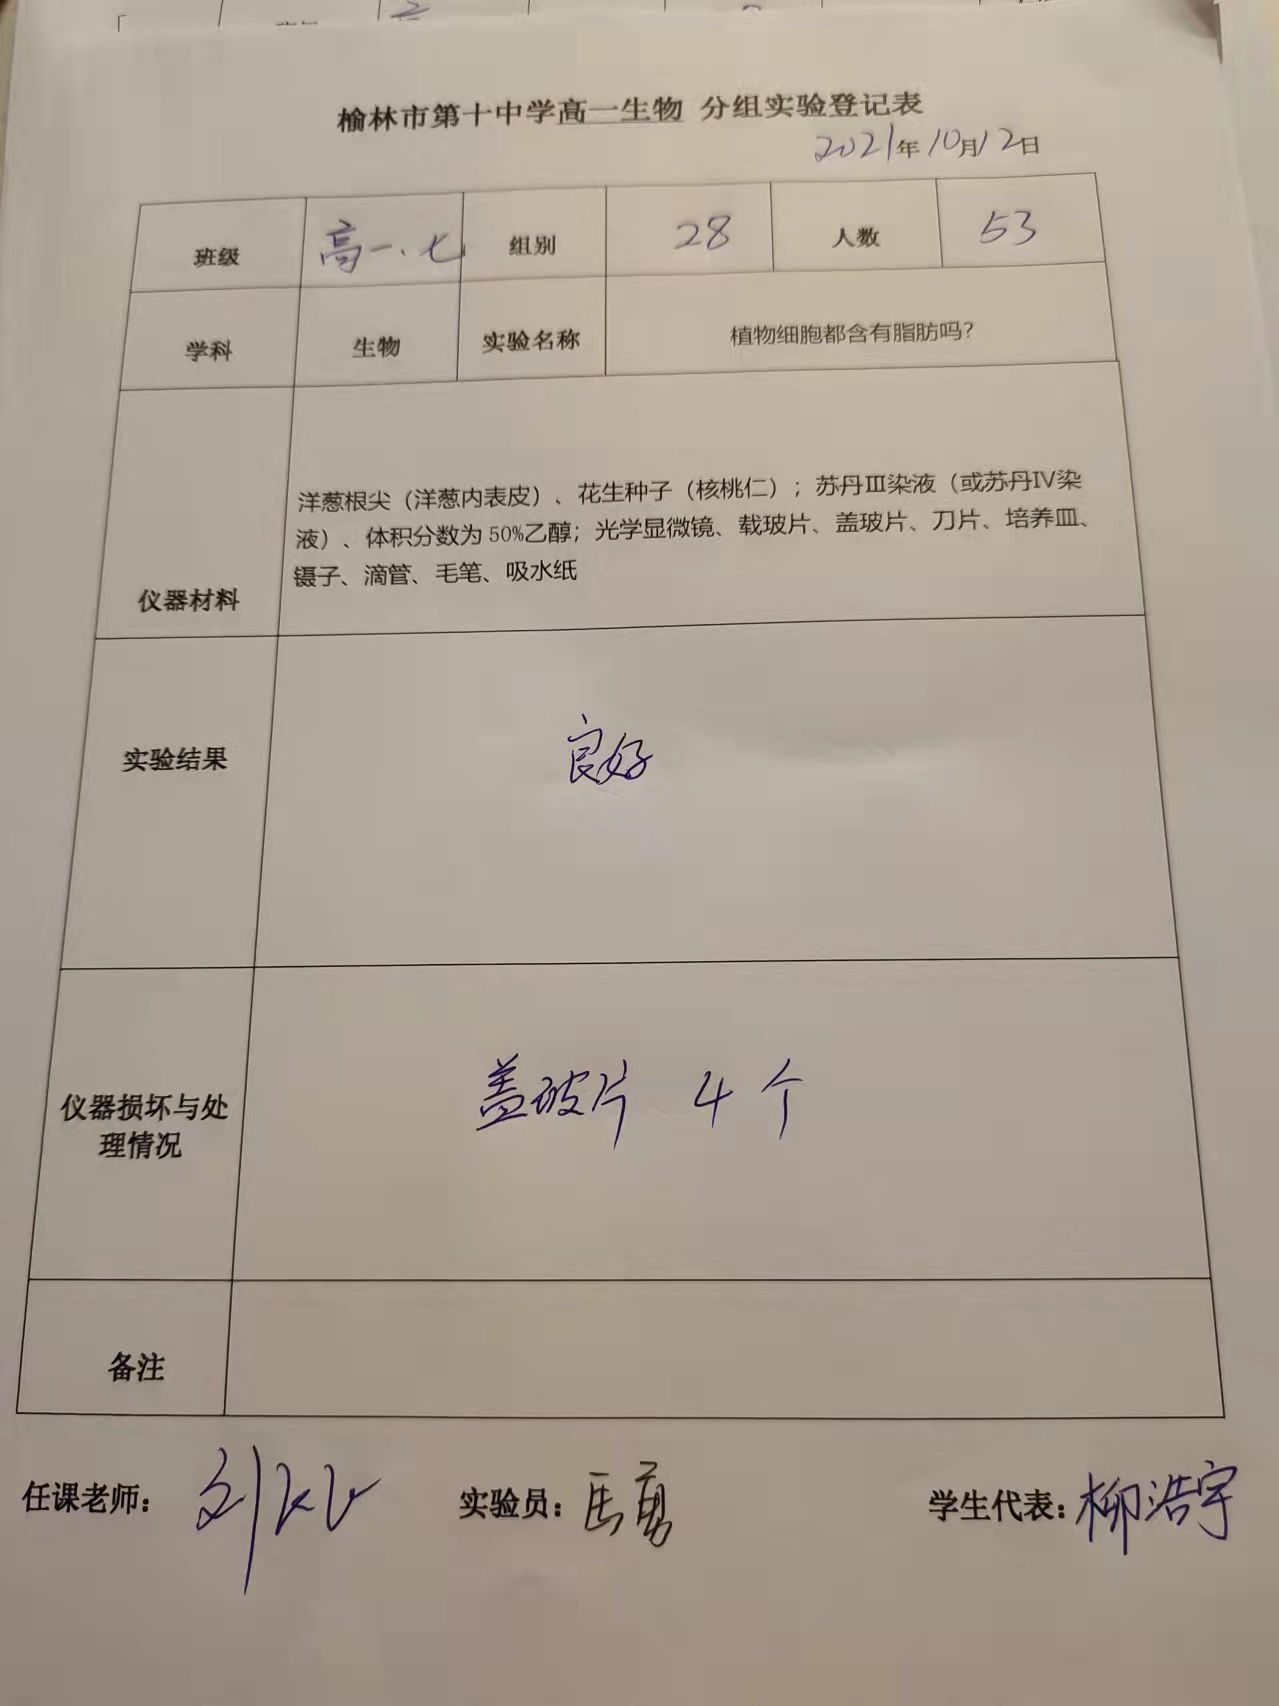 榆林市第十中学高一生物 分组实验登记表
2021年10月12日
班级 高一.七 组别 28 人数 53
学科 生物 实验名称 植物细胞都含有脂肪吗？
洋葱根尖（洋葱内表皮）、花生种子（核桃仁）；苏丹Ⅲ染液（或苏丹Ⅳ染
液）、体积分数为 50%乙醇；光学显微镜、载玻片、盖玻片、刀片、培养皿、
镊子、滴管、毛笔、吸水纸
仪器材料
实验结果 良好
仪器损坏与处
理情况
盖玻片 4 个
备注
任课老师： 刘 实验员：马勇 学生代表：柳浩宇